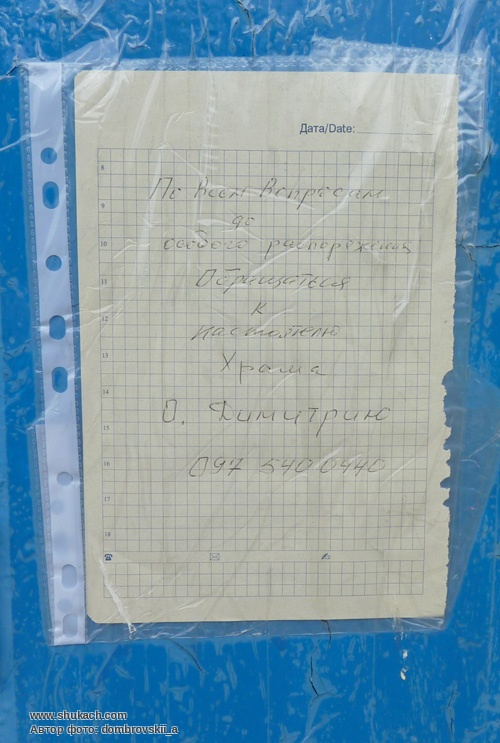 Дата/Date:
8
По всем вопросам
9
до
10
особого распоряжения
11
Обращаться
к
12
настоятелю
13
Храма
14
О. Димитрию
15
16
097 540 0440
17
18
www.shukach.com
Автор фото: dombrovskii_a